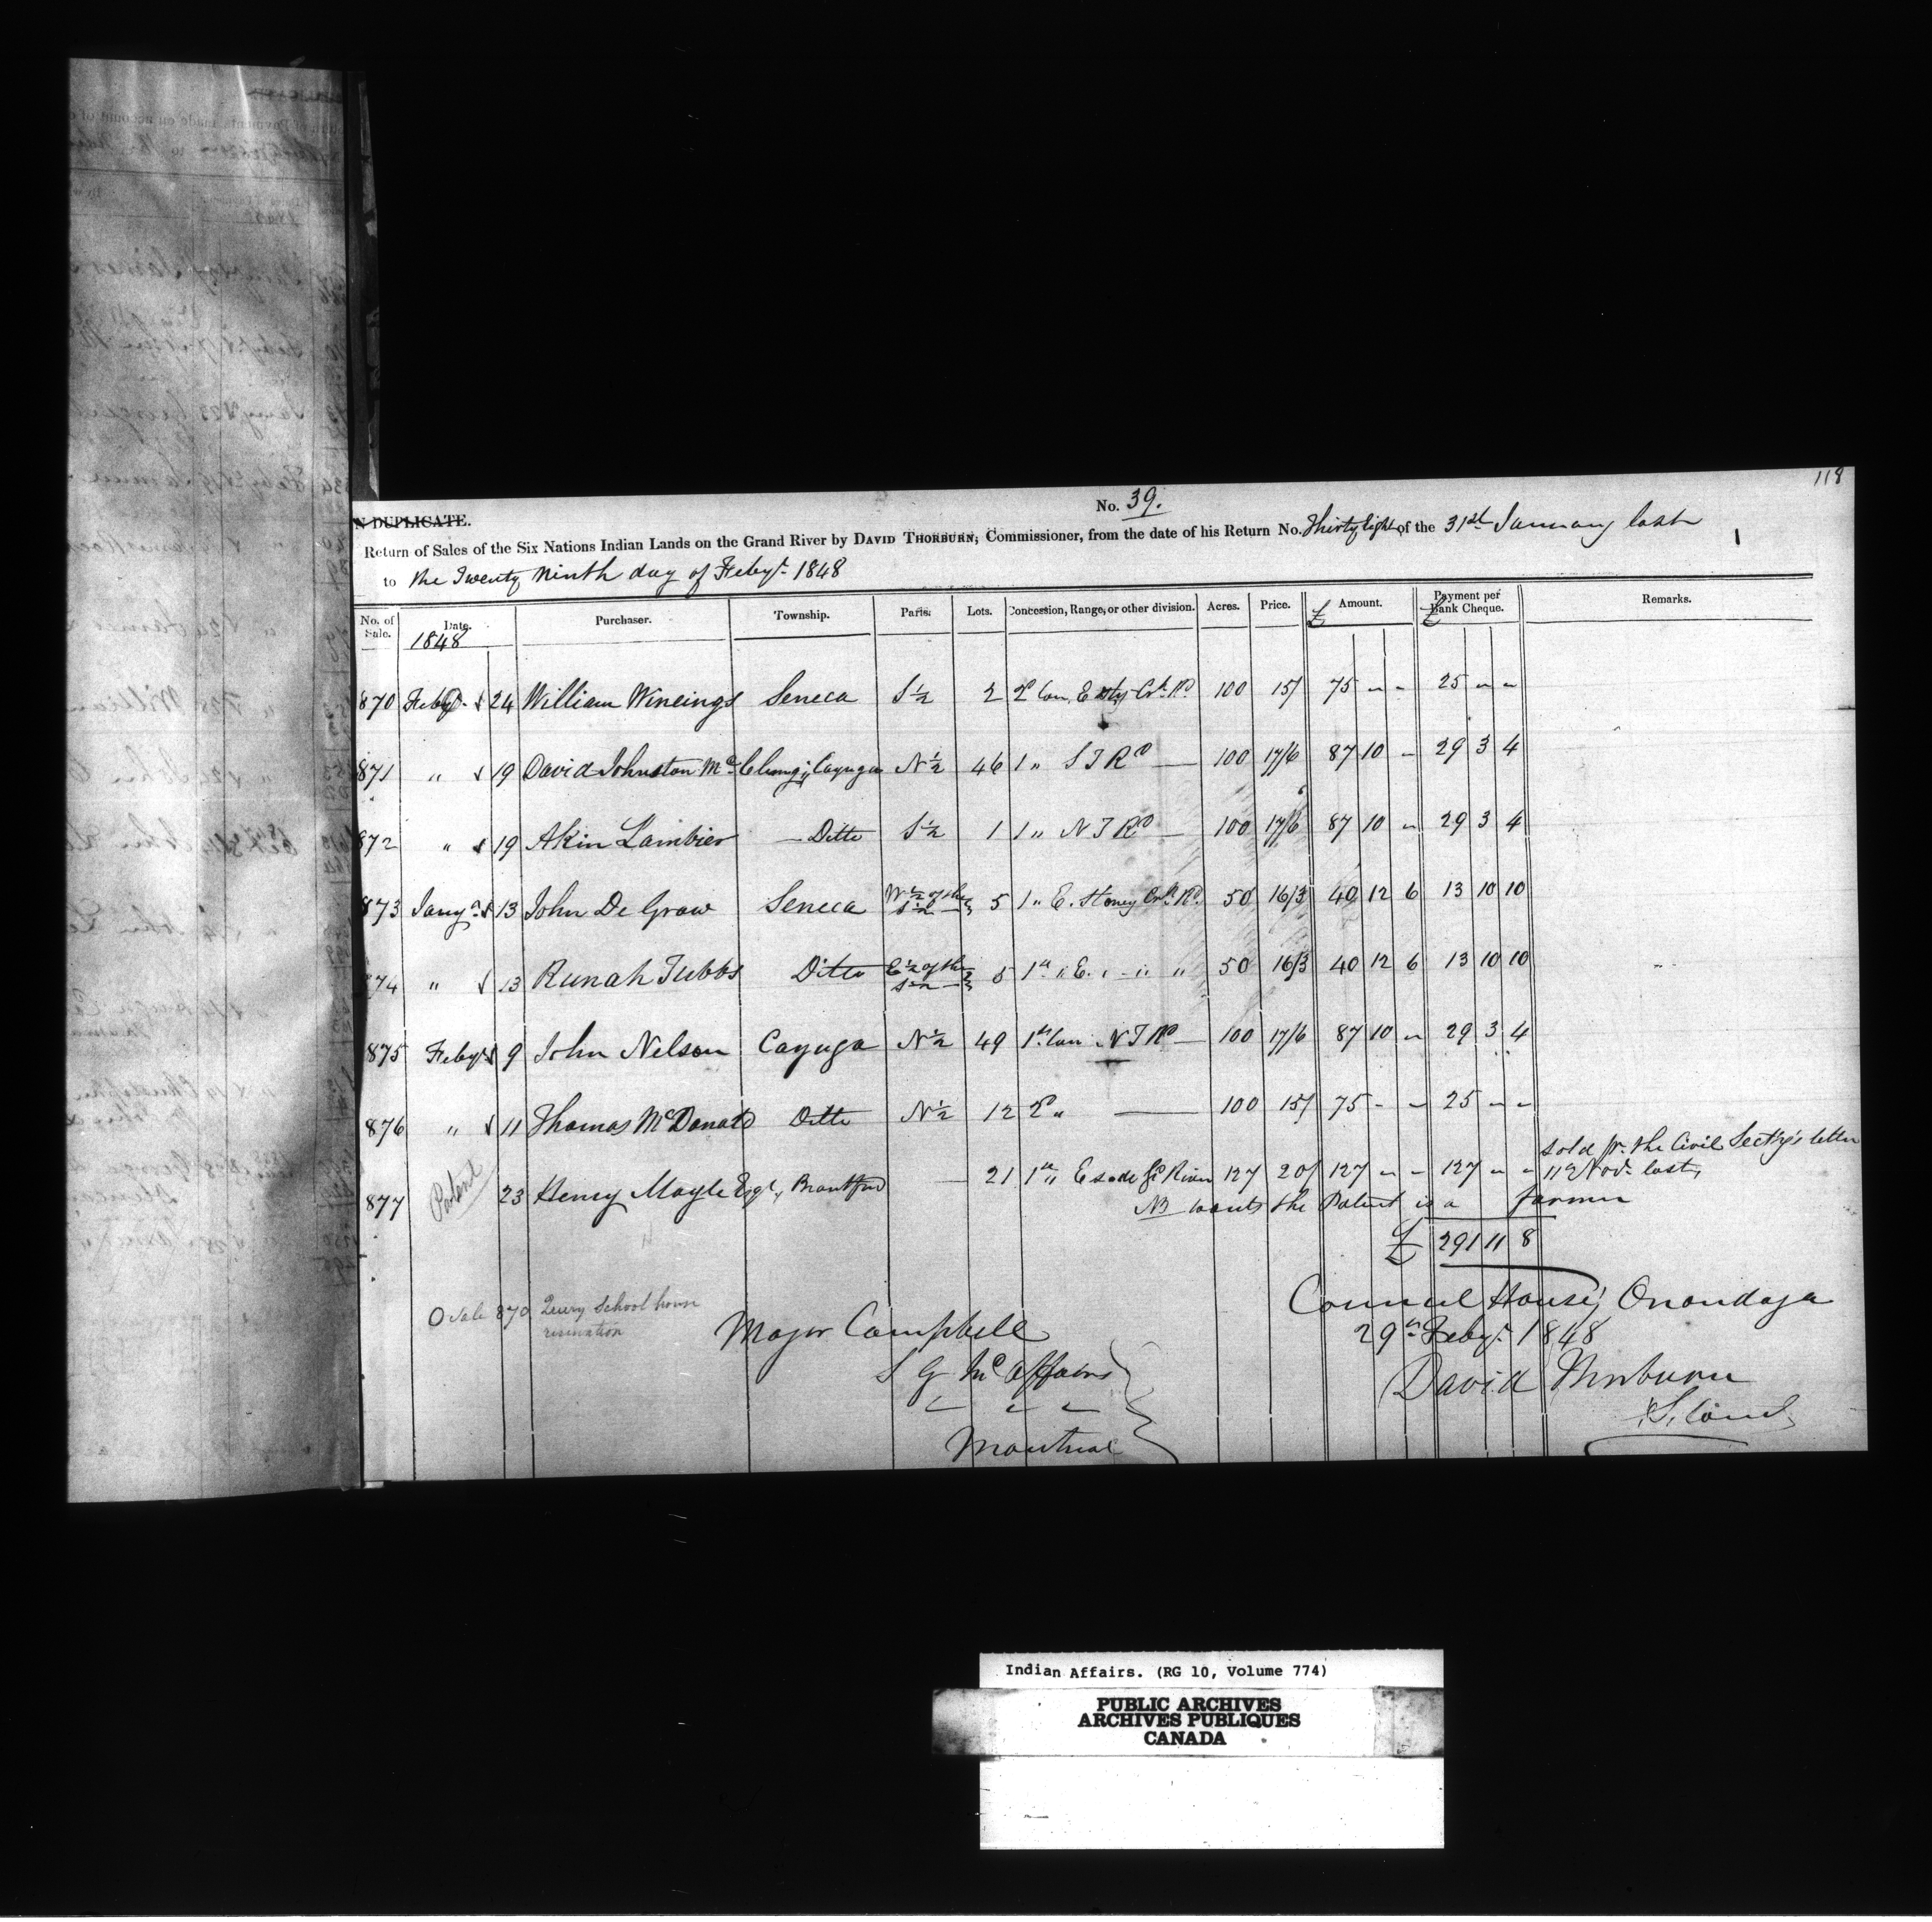 118
No. 39.
N DUPLICATE.
Return of Sales of the Six Nations Indian Lands on the Grand River by DAVID THORBURN, Commissioner, from the date of his Return No. Thirty Eight of the 31st January last
to the Twenty Ninth day of Feby. 1848
No. of Sale. Date. Purchaser. Township. Parts. Lots. Concession, Range, or other division. Acres. Price. £ Amount. £ Payment per Bank Cheque. Remarks.
1848
870 Feby. 24 William Wineings Seneca S ½ 2 2d Con. E 100 15/ 75 - - 25 - -
871 " 19 David Johnston Cayuga N ½ 46 1 " S T Rd 100 17/6 87 10 - 29 3 4
872 " 19 Akin Lambier Ditto S ½ 1 1 " N T Rd 100 17/6 87 10 - 29 3 4
873 Jany. 13 John De Graw Seneca W ½ of the S ½ 5 1 " E. Stoney Crk. Rd. 50 16/3 40 12 6 13 10 10
874 " 13 Runah Tubbs Ditto E ½ of the S ½ 5 1st " E. " " " 50 16/3 40 12 6 13 10 10
875 Feby. 9 John Nelson Cayuga N ½ 49 1st Con N T Rd 100 17/6 87 10 - 29 3 4
876 " 11 Thomas McDonald Ditto N ½ 12 2d " 100 15/ 75 - - 25 - -
sold pr. the Civil Secty's letter
877 Patent 23 Henry Moyle Esqr., Brantford - 21 1st " E side Gd River 127 20/ 127 - - 127 - - 11th Novr. last,
NB wants the Patent is a farmer
£ 291 11 8
O Sale 870 Query School house
Council House, Onondaga
Major Campbell
29th Feby. 1848
S G Affairs
David Thorburn
Montreal
Indian Affairs. (RG 10, Volume 774)
PUBLIC ARCHIVES
ARCHIVES PUBLIQUES
CANADA